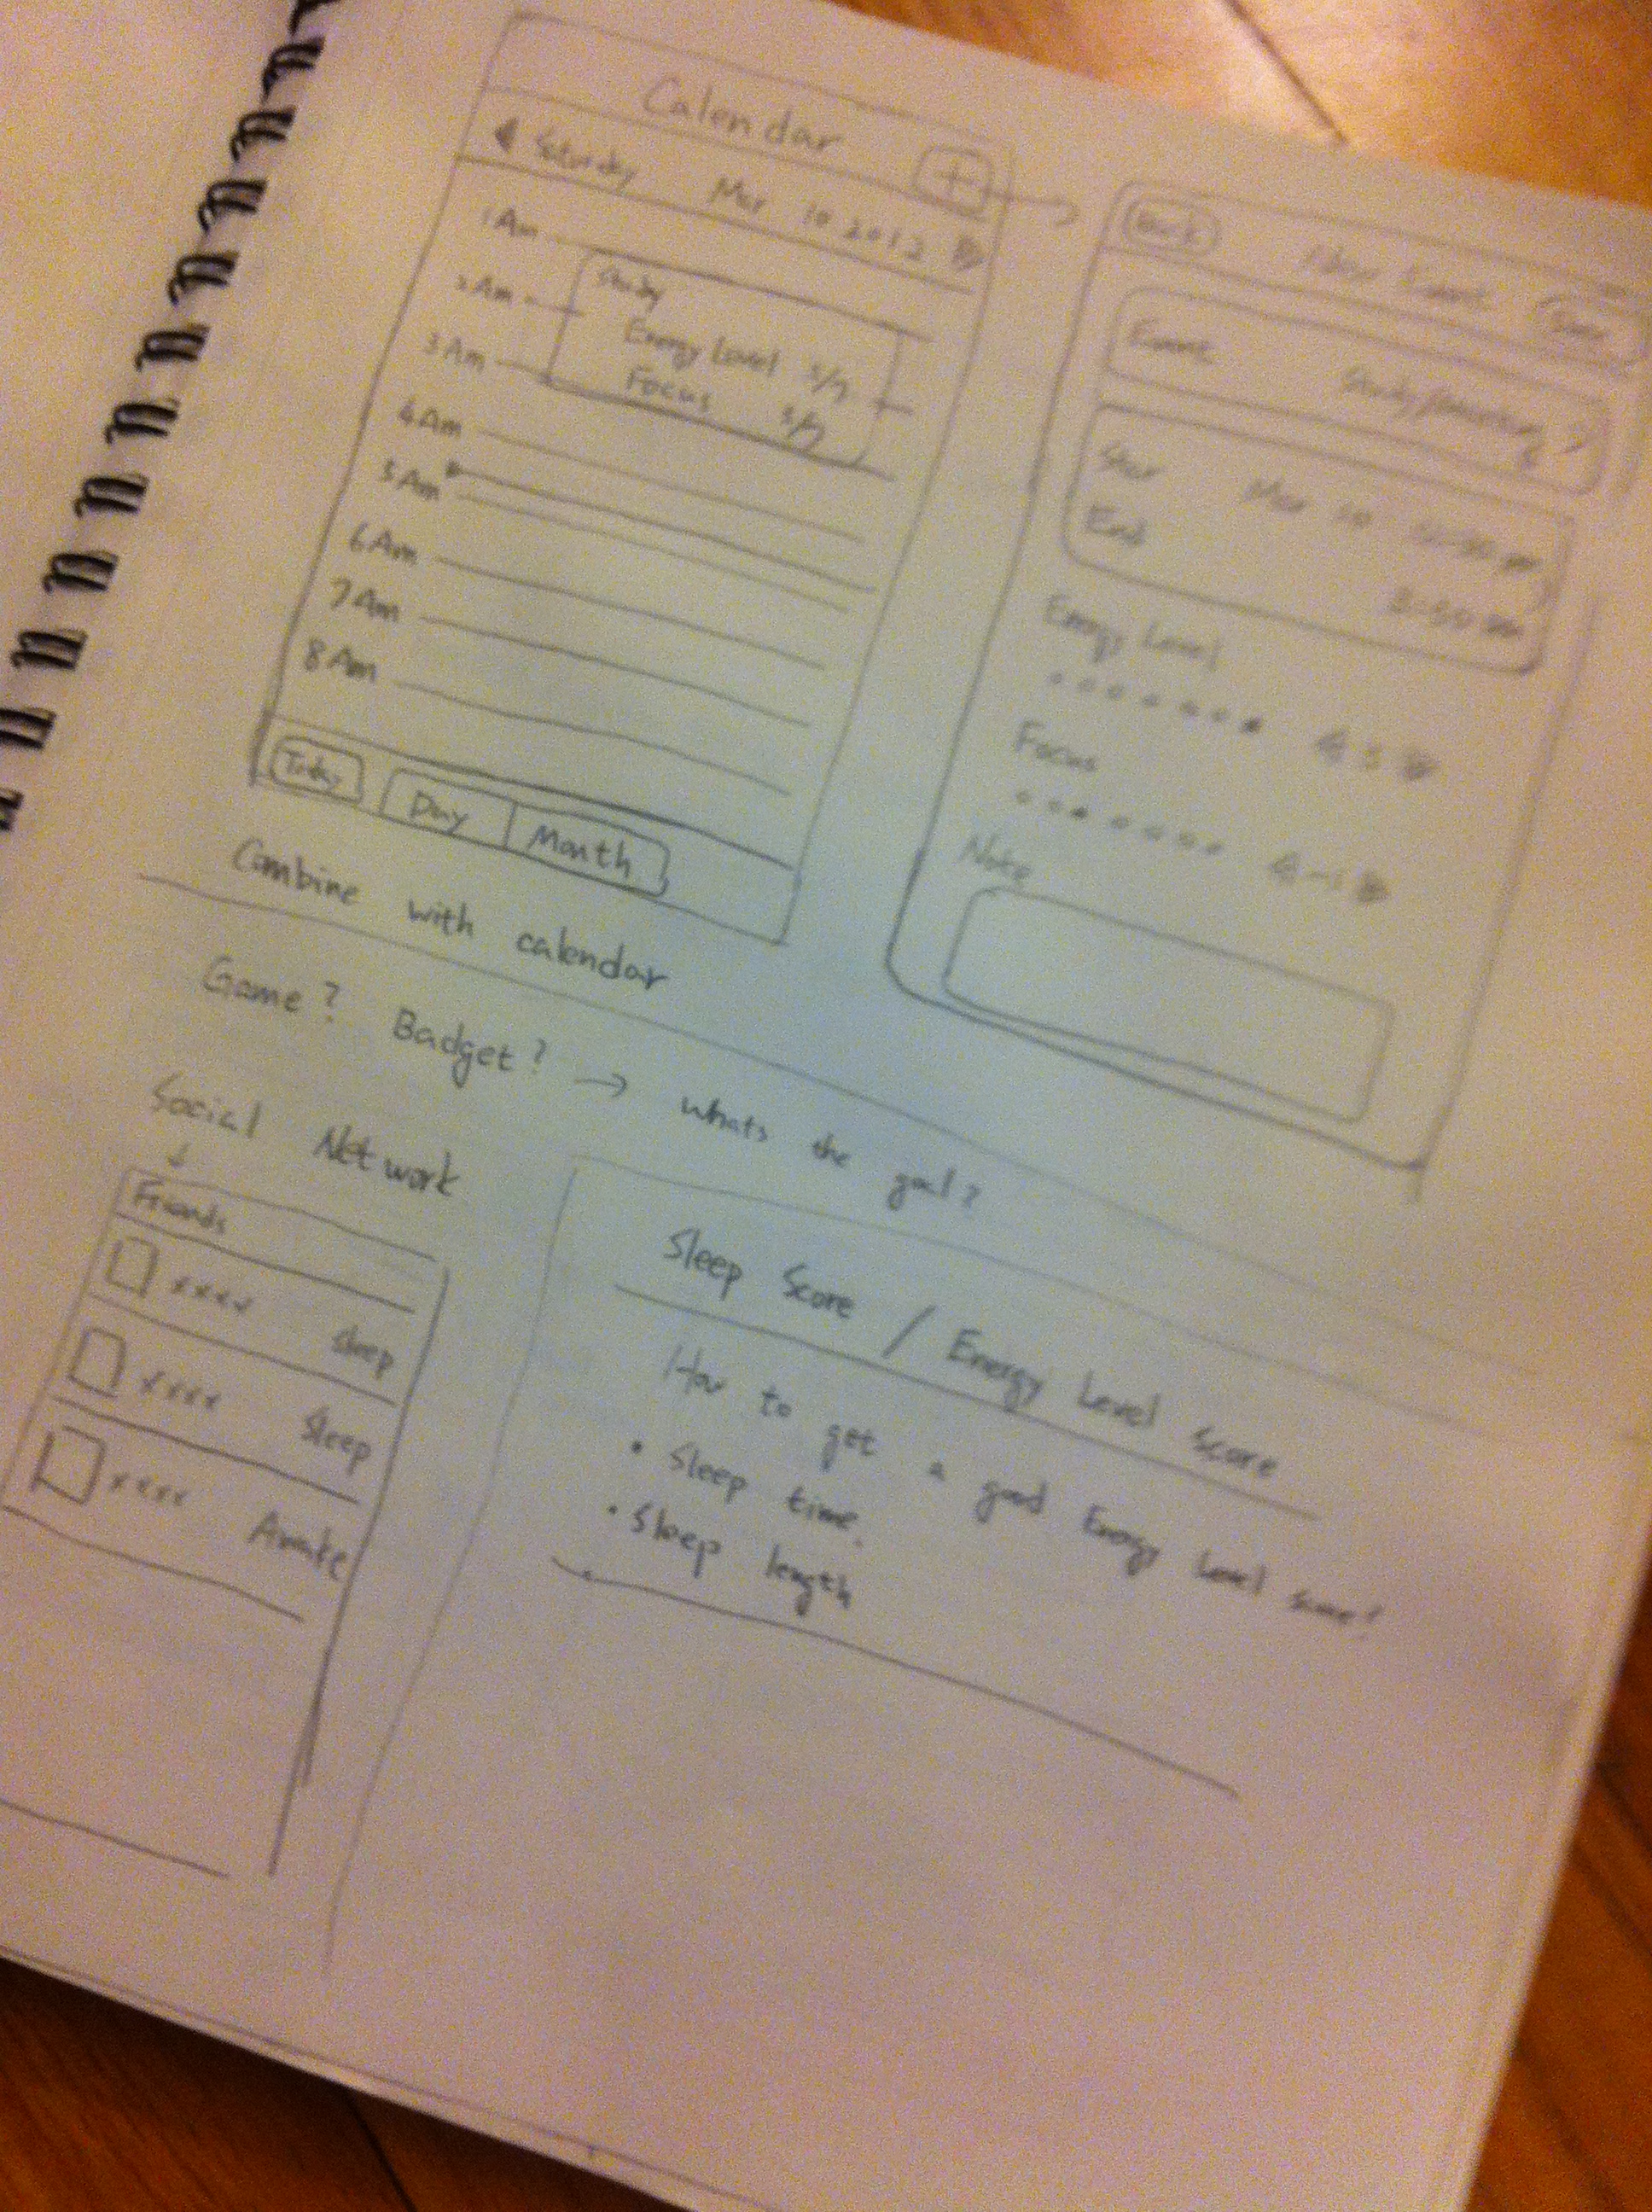 Calendar
+
Saturday Mar 10 2012
1 Am
2 Am
3 Am
4 Am
5 Am
6 Am
7 Am
8 Am
Study
Energy Level
Focus
Today Day Month
Back New Event
Event Study/
Star Mar 10
End
Energy Level
Focus
Note
Combine with calendar
Game? Badget? → whats the goal?
Social Network
↓
Friends
xxxx Sleep
xxxx Sleep
xxxx Awake
Sleep Score / Energy Level Score
How to get a good Energy Level score?
• Sleep time.
• Sleep length